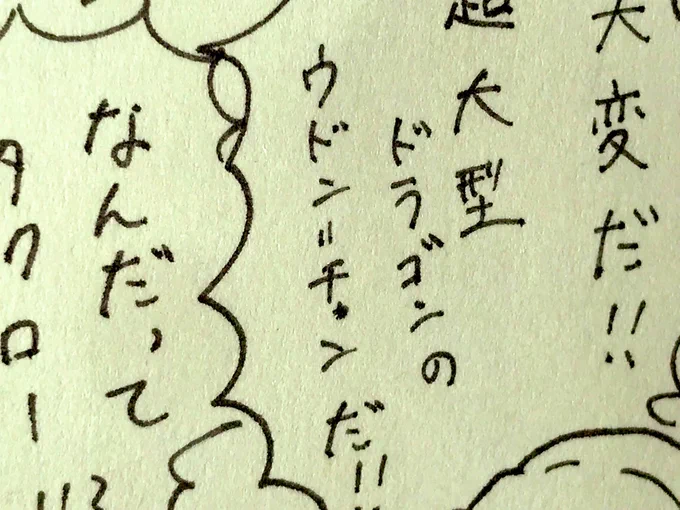 大変だ!!
超大型
ドラゴンの
ウドン=チャンだ!!
なんだって
タクロー